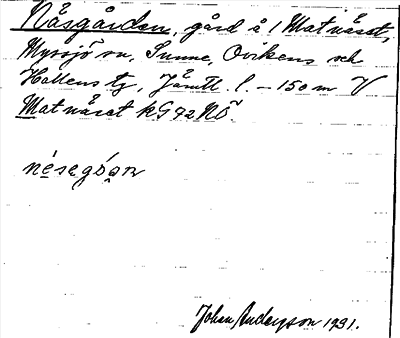 Näsgården, gård å 1 Matnäset,
Myssjö sn, Sunne, Ovikens och
Hallens tg, Jämtl. l. – 150 m V
Matnäset kG 72 NÖ
nésegóan
Johan Anderzson 1931.